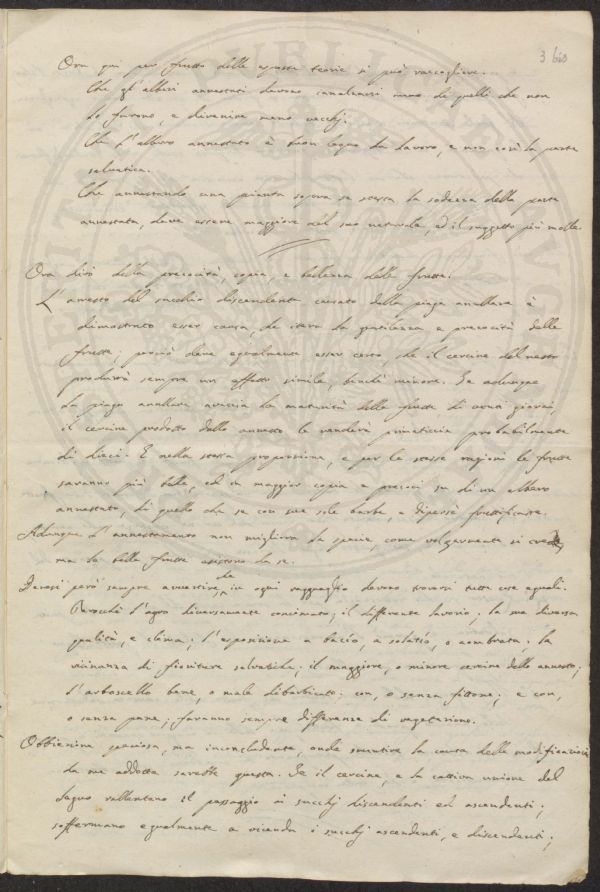 3 bis
Ora qui però frutto delle esposte teorie si può raccogliere.
Che gl'alberi annestati devono meno di quelli che non
lo furono, e divenire meno vecchj.
Che l'albero annestato è buon legno da lavoro, e non così la parte
selvatica.
Che annestando una pianta sopra se stessa la sodezza della parte
annestata, deve essere maggiore del suo naturale, ed il suggetto più molle
Ora dirò della precocità, copia, e bellezza delle frutte.
L'arresto del succhio discendente causato dalla piaga anullare è
dimostrato esser causa, che la grossezza e precocità delle
frutte; perciò deve egualmente esser certo, che il cercine del nesto
produrrà sempre un effetto simile, benchè minore. Se adunque
la piaga anullare avaccia la maturità delle frutte di venti giorni,
il cercine prodotto dallo annesto le renderà primaticcie probabilmente
di dieci. E nella stessa proporzione, e per le stesse ragioni le frutte
saranno più belle, ed in maggior copia e precoci su di un albero
annestato, di quello che se con sue sole barbe, e di per sè fruttificasse.
Adunque l'annestamento non migliora la specie, come volgarmente si crede,
ma le belle frutte esistono da se.
Devesi però sempre avvertire, che in ogni ragguaglio devono trovarsi tutte cose eguali.
Perocchè l'agro diversamente concimato; il differente lavorio; la sua diversa
qualità, e clima; l'esposizione a bacío, a solatío, o aombrata; la
vicinanza di fioriture salvatiche; il maggiore, o minore cercine dello annesto;
l'arboscello bene, o male dibarbicato: con, o senza fittone; e con,
o senza pane; faranno sempre differenze di vegetazione.
Obbiezione speciosa, ma inconcludente, onde smentire la causa delle modificazioni
da me addotta sarebbe questa. Se il cercine, e la cattiva unione del
legno rallentano il passaggio ai succhj discendenti ed ascendenti;
soffermano egualmente a vicenda i succhj ascendenti, e discendenti;